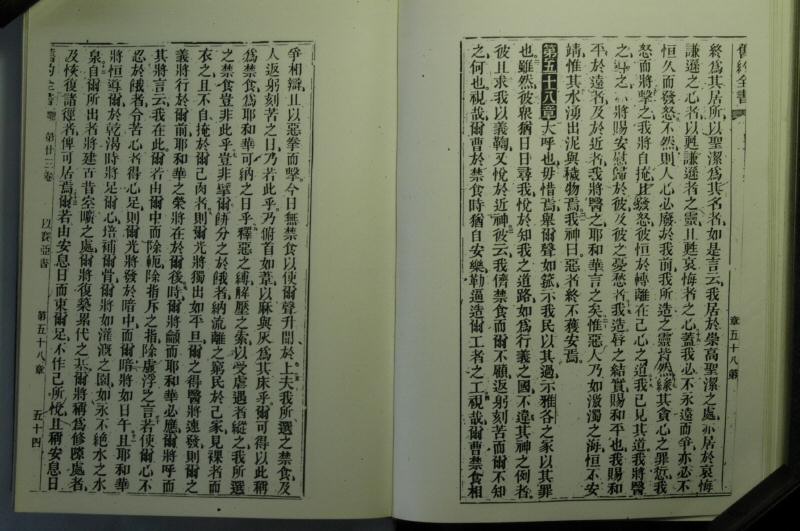 舊約全書
章五十八第
終爲其居所以聖潔爲其名者如是言云我居於崇高聖潔之處亦居於哀悔
謙遜之心者以甦謙遜者之靈且甦哀悔者之心蓋我必不永遠而爭亦必不
恒久而發怒不然則人心必廢於我前我所造之靈皆然緣其貪心之罪惹我
怒而將擊之我將自掩且發怒彼恒於轉離在己心之道我已見其道我將醫
之導之亦將賜安慰歸於彼及彼之憂愁者我造辱之結實賜和平也我賜和
平於遠者及於近者我將醫之耶和華言之矣惟惡人乃如滋濁之海恒不安
靖惟其水湧出泥與穢物焉我神曰惡者終不獲安焉
第五十八章大呼也毋惜焉舉爾聲如箛示我民以其過示雅各之家以其罪
也雖然彼衆日日尋我悅於知我之道路如爲行義之國不違其神之例者
彼且求我以義鞫又悅於近神彼云我儕禁食而爾不顧返躬刻苦而爾不知
之何也視哉爾曹於禁食時猶自安樂勒逼造爾工者之工視哉爾曹禁食相
爭相辯且以惡拳而擊今日無禁食以使爾聲升聞於上夫我所選之禁食及
人返躬刻苦之日乃若此乎乃俯首如葦以麻與灰爲其床乎爾可得以此稱
爲禁食爲耶和華可納之日乎釋惡之縛解壓之索以受虐遇者縱之我所選
之禁食豈非此乎豈非擘爾餅分之於餓者納流離之窮民於己家見裸者而
衣之且不自掩於爾己肉者則爾光將獨出如平旦爾之得醫將速發則爾之
義將行於爾前耶和華之榮將在於爾後時爾將籲而耶和華必應爾將呼而
其將言云我在此爾若由爾中而除軛除指斥之指除虛浮之言若使爾心不
忍於餓者令苦心者得心足則爾光將發於暗中而爾暗將如日午且耶和華
將恒導爾於乾渴時將足爾心培補爾骨爾將如灌溉之園如永不絕水之水
泉自爾所出者將建百昔空曠之處爾將復築累代之基爾將稱爲修隙處者
及恢復諸徑者俾可居焉爾若由安息日而東爾足不作己所悅且稱安息日
舊約全書
第廿三卷
以賽亞書
第五十八章
五十四